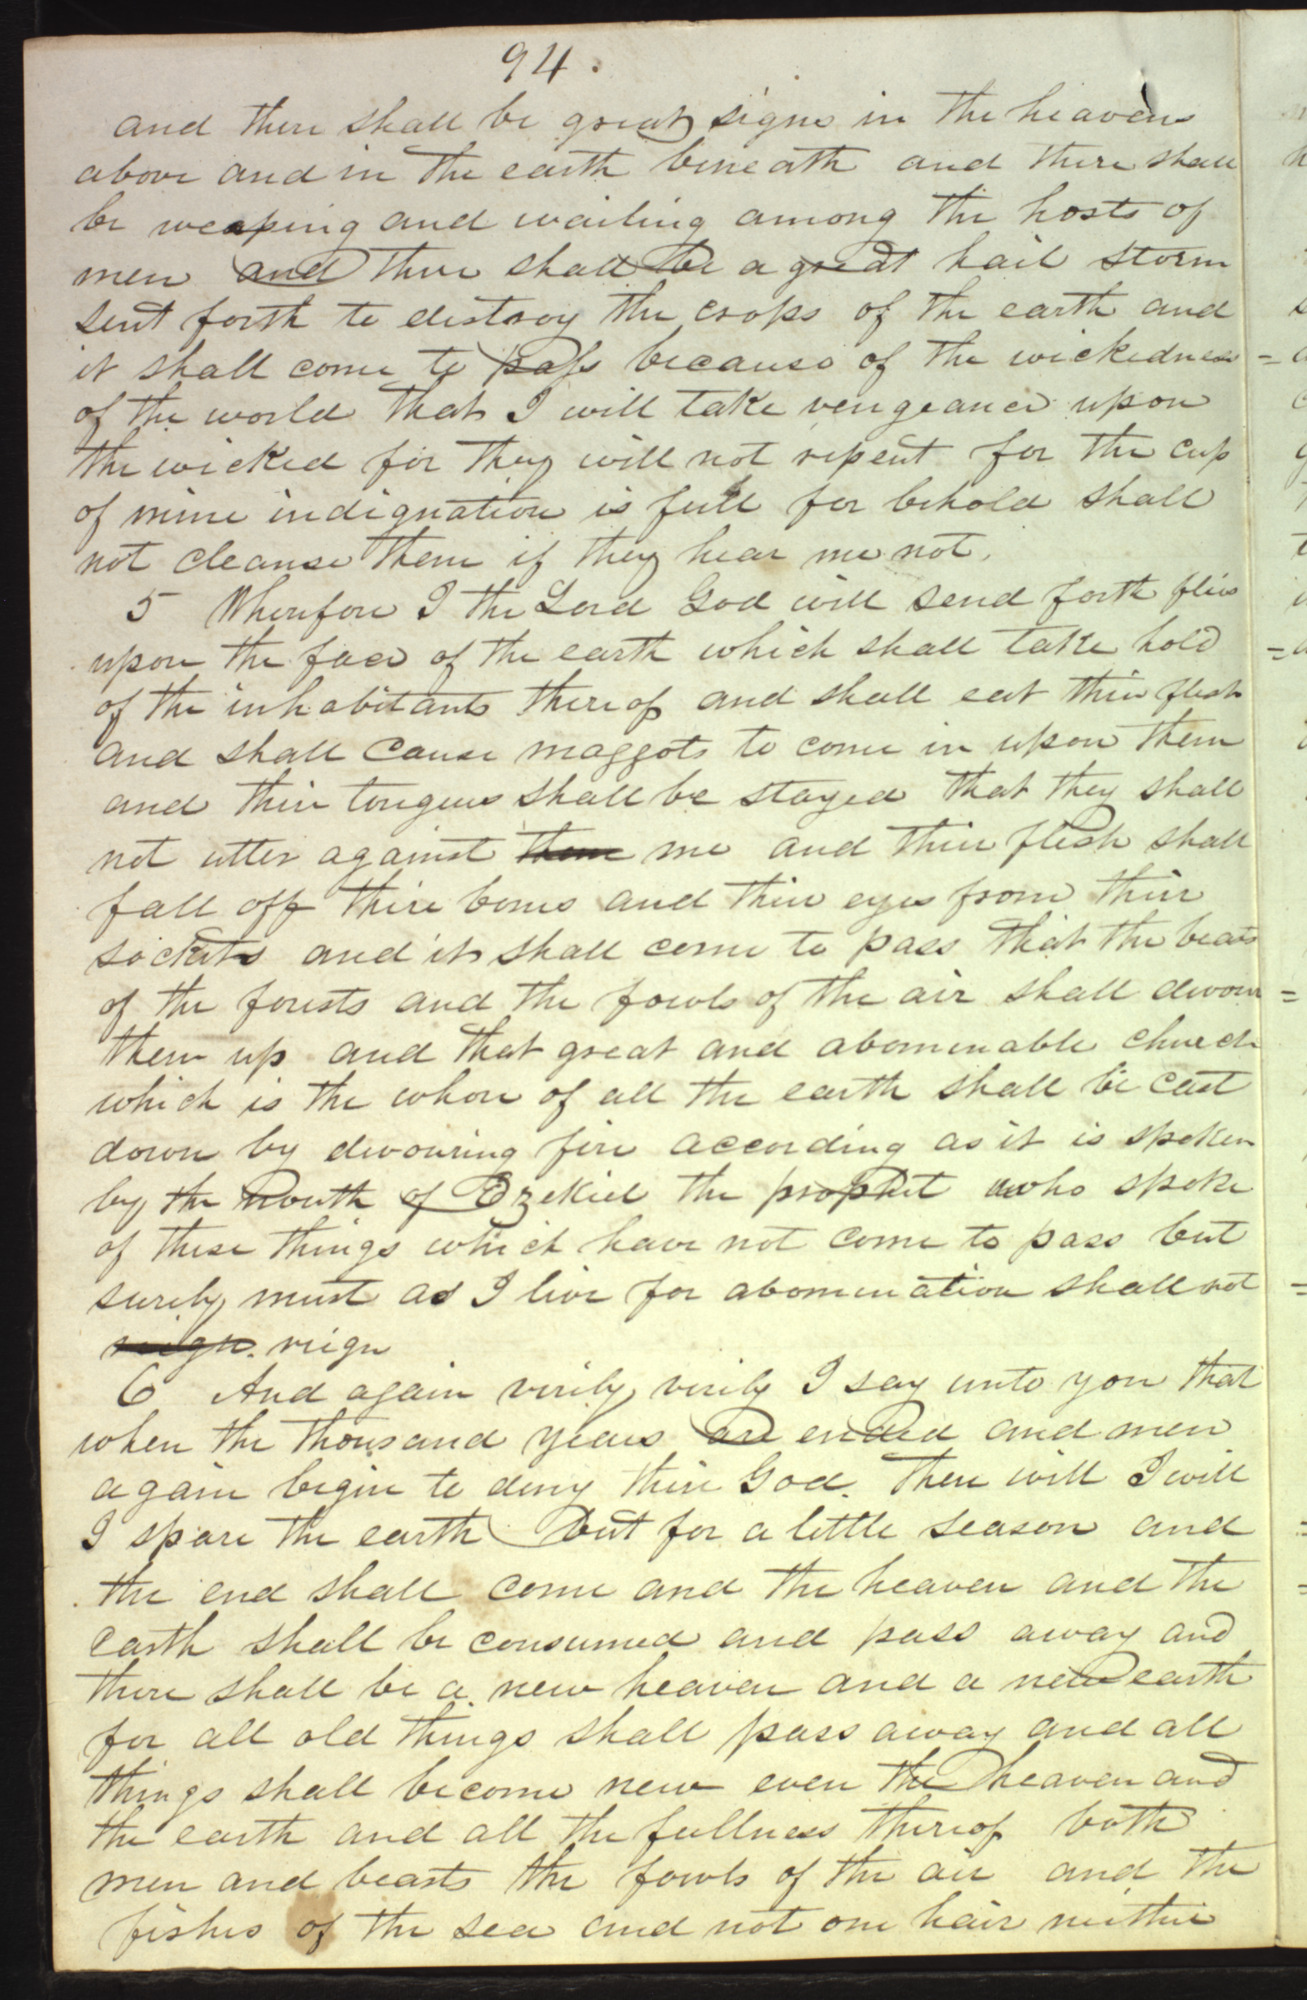 94.
and there shall be great signs in the heavens
above and in the earth beneath and there shall
be weaping and wailing among the hosts of
men and there shall be a great hail storm
sent forth to destroy the crops of the earth and
it shall come to pass because of the wickedness
of the world that I will take vengeance upon
the wicked for they will not repent for the cup
of mine indignation is full for behold shall
not cleanse them if they hear me not.
5 Wherefore I the Lord God will send forth flies
upon the face of the earth which shall take hold
of the inhabitants thereof and shall eat their flesh
and shall cause maggots to come in upon them
and their tongues shall be stayed that they shall
not utter against them me and their flesh shall
fall off their bones and their eyes from their
sockets and it shall come to pass that the beasts
of the forests and the fowls of the air shall devour
them up and that great and abominable church
which is the whore of all the earth shall be cast
down by devouring fire according as it is spoken
by the mouth of Ezekiel the prophet who spoke
of these things which have not come to pass but
surely must as I live for abomination shall not
reign. reign
6 And again verily, verily I say unto you that
when the thousand years are ended and men
again begin to deny their God. then will I will
I spare the earth but for a little season and
the end shall come and the heaven and the
earth shall be consumed and pass away and
there shall be a new heaven and a new earth
for all old things shall pass away and all
things shall become new even the heaven and
the earth and all the fullness thereof both
men and beasts the fowls of the air and the
fishes of the sea and not one hair neither